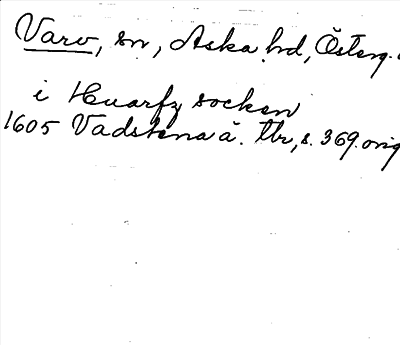 Varv, sn, Aska hd, Österg.
i Huarfz socken
1605 Vadstena ä. tbr, s. 369. orig